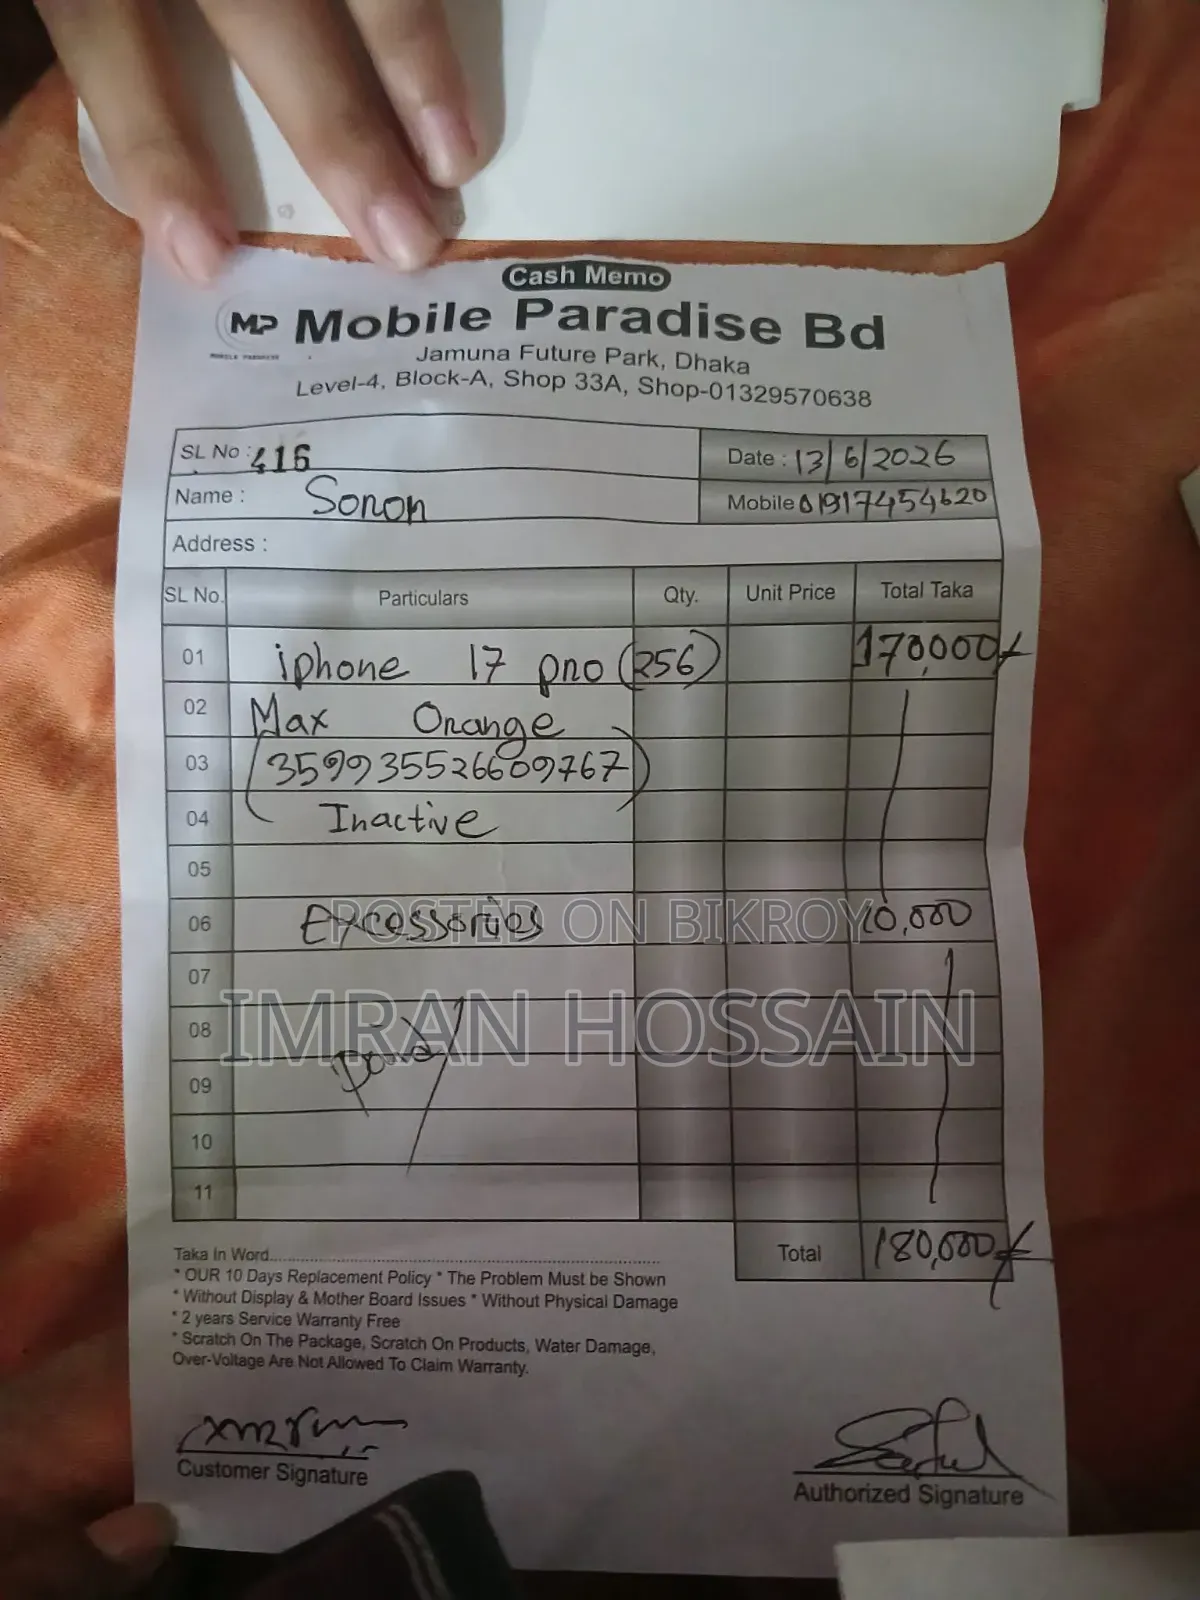 Cash Memo
MP Mobile Paradise Bd
MOBILE PARADISE
Jamuna Future Park, Dhaka
Level-4, Block-A, Shop 33A, Shop-01329570638
SL No : 416
Date : 13/6/2026
Name : Sonon
Mobile 01917454620
Address :
SL No. Particulars Qty. Unit Price Total Taka
01 iphone 17 pro (256) 170,000/
02 Max Orange
03 (359935526609767)
04 Inactive
05
06 Excessories 10,000
POSTED ON BIKROY
07
IMRAN HOSSAIN
08 paid
09
10
11
Total 180,000/
Taka In Word
* OUR 10 Days Replacement Policy * The Problem Must be Shown
* Without Display & Mother Board Issues * Without Physical Damage
* 2 years Service Warranty Free
* Scratch On The Package, Scratch On Products, Water Damage,
Over-Voltage Are Not Allowed To Claim Warranty.
Customer Signature
Authorized Signature